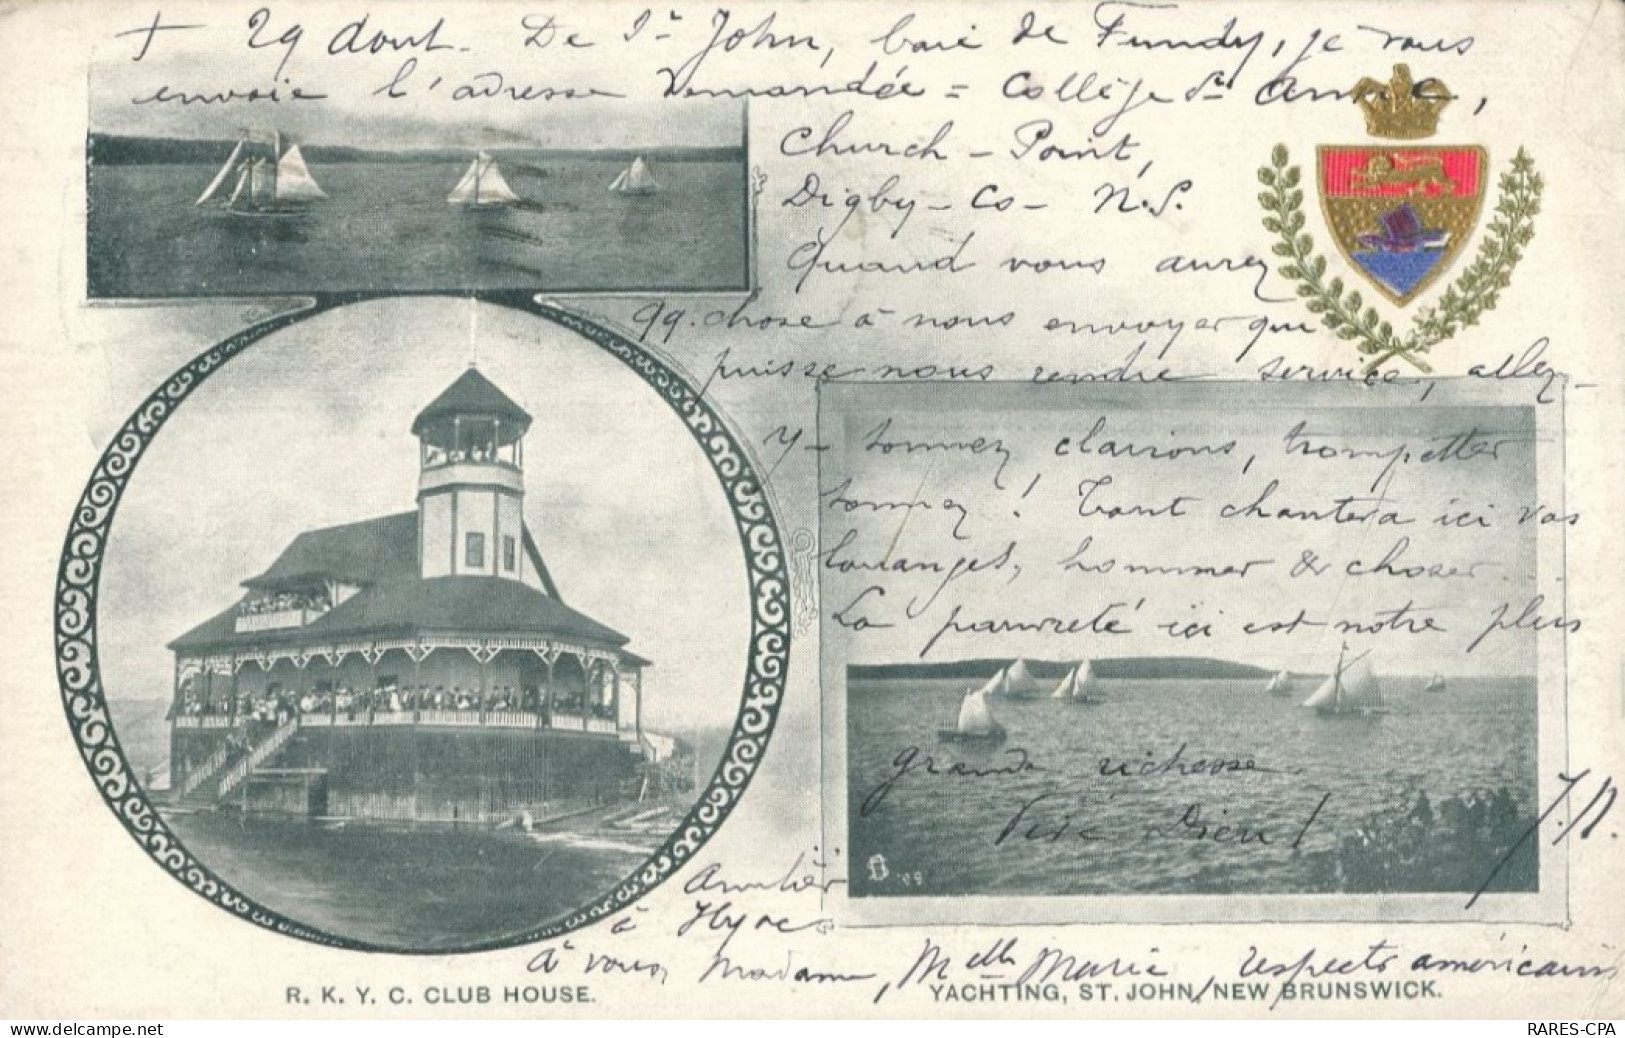 + 29 août. De St John, baie de Fundy, je vous
envoie l'adresse demandée = Collège Ste Anne,
Church - Point,
Digby - Co - N.S.
Quand vous aurez
qq. chose à nous envoyer qui
puisse nous rendre service, allez-
y - sonnez clairons, trompettes
sonnez ! Tant chantera ici vos
louanges, hommes & choses...
La pauvreté ici est notre plus
grande richesse.
Vive Dieu !
Amitiés
à Hyres
à vous, Madame, Melle Marie, respects américains
R. K. Y. C. CLUB HOUSE.
YACHTING, ST. JOHN, NEW BRUNSWICK.
delcampe.net
RARES-CPA